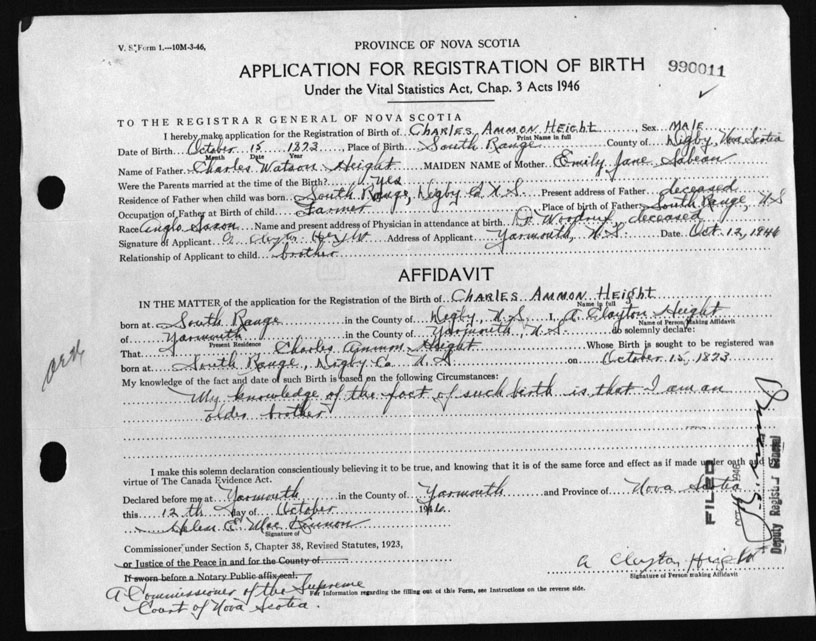 V. S. Form 1.—10M-3-46.
PROVINCE OF NOVA SCOTIA
APPLICATION FOR REGISTRATION OF BIRTH 990011
Under the Vital Statistics Act, Chap. 3 Acts 1946
TO THE REGISTRAR GENERAL OF NOVA SCOTIA
I hereby make application for the Registration of Birth of Charles Ammon Height Sex Male
Print Name in full
Date of Birth October 15 1873 Place of Birth South Range County of Digby, Nova Scotia
Month Date Year
Name of Father Charles Watson Height MAIDEN NAME of Mother Emily Jane Sabean
Were the Parents married at the time of Birth? Yes
Residence of Father when child was born South Range, Digby Co N.S. Present address of Father deceased
Occupation of Father at Birth of child Farmer Place of birth of Father South Range, N.S
Race Anglo Saxon Name and present address of Physician in attendance at birth Dr. deceased
Signature of Applicant A Clayton Height Address of Applicant Yarmouth, N.S. Date Oct. 12, 1946
Relationship of Applicant to child brother
AFFIDAVIT
IN THE MATTER of the application for the Registration of the Birth of Charles Ammon Height
Name in full
born at South Range in the County of Digby, N.S. I, A. Clayton Height
Name of Person Making Affidavit
of Yarmouth in the County of Yarmouth, N.S. do solemnly declare:
Present Residence
That Charles Ammon Height Whose Birth is sought to be registered was
born at South Range, Digby Co. N.S. on October 15, 1873
My knowledge of the fact and date of such Birth is based on the following Circumstances:
My knowledge of the fact of such birth is that I am an
older brother
I make this solemn declaration conscientiously believing it to be true, and knowing that it is of the same force and effect as if made under oath and
virtue of The Canada Evidence Act.
Declared before me at Yarmouth in the County of Yarmouth and Province of Nova Scotia
this 12th day of October 1946.
Helen E. MacKinnon
Signature of
Commissioner under Section 5, Chapter 38, Revised Statutes, 1923,
or Justice of the Peace in and for the County of
If sworn before a Notary Public affix seal.
A Clayton Height
Signature of Person making Affidavit
A Commissioner of the Supreme
Court of Nova Scotia.
For Information regarding the filling out of this Form, see Instructions on the reverse side.
FILED
OCT 1946
Deputy Registrar General